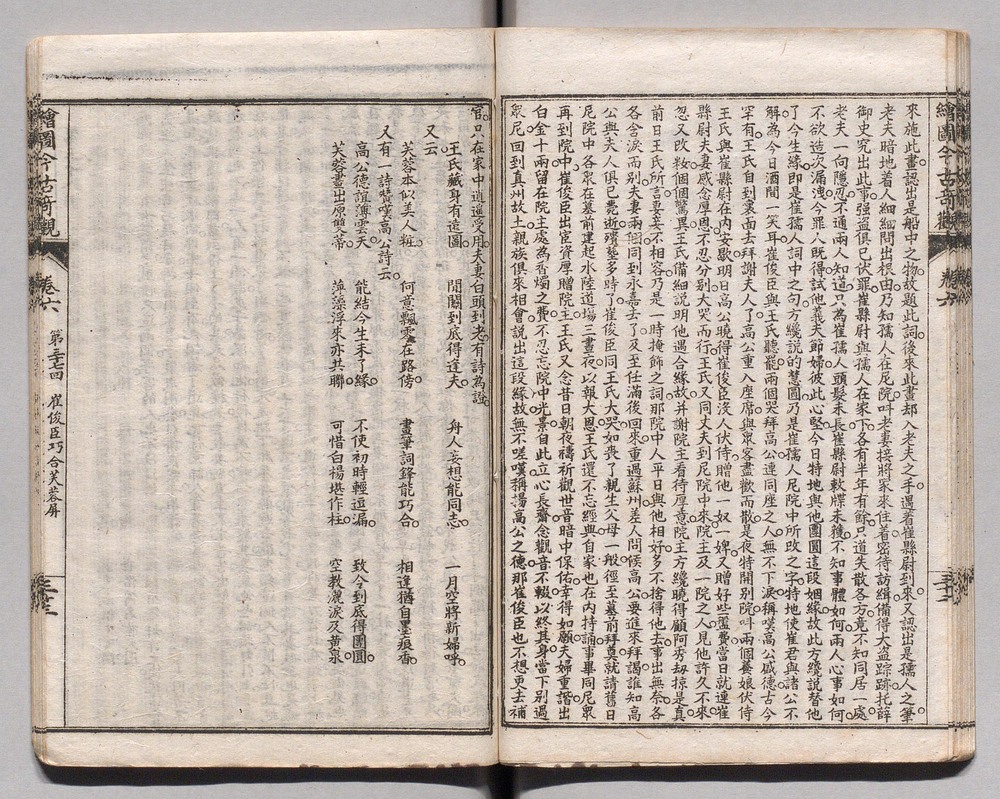 繪圖今古奇觀 卷六
來施此畫認出是船中之物故題此詞後來此畫却入老夫之手遇着崔縣尉到來又認出是孺人之筆
老夫暗地着人細細問出根由乃知孺人在尼院叫老妻接將家來住着密待訪緝備得大盜踪跡托薛
御史究出此事強盜俱已伏罪崔縣尉與孺人在家下各有半年有餘只道失散各方竟不知同居一處
老夫一向隱忍不通兩人知道只為崔孺人頭髮未長崔縣尉軟牒未獲不知事體如何兩人心事如何
不欲造次漏洩今罪人既得試他義夫節婦彼此心堅今日特地與他團圓這段姻緣故此方纔說替他
了今生緣即是崔孺人詞中之句方纔說的慧圓乃是崔孺人尼院中所改之字特地使崔君與諸公不
解為今日酒間一笑耳崔俊臣與王氏聽罷兩個哭拜高公連同座之人無不下淚稱嘆高公盛德古今
罕有王氏自到裏面去拜謝夫人了高公重入座席與眾客盡歡而散是夜特開別院叫兩個養娘伏侍
王氏與崔縣尉在內安歇明日高公曉得崔俊臣沒人伏侍贈他一奴一婢又贈好些盤費當日就連崔
縣尉夫妻感念厚恩不忍分別大哭而行王氏又同丈夫到尼院中來院主及一院之人見他許久不來
忽又改粧個個驚異王氏備細說明他遇合緣故并謝院主看待厚意院主方纔曉得顧阿秀劫掠是真
前日王氏所言妻妾不相容乃是一時掩飾之詞那院中人平日與他相好多不捨得他去事出無奈各
各含淚而別夫妻兩個同到永嘉去了及至任滿後回來重過蘇州差人問候高公要進來拜謁誰知高
公與夫人俱已薨逝殯塟多時了崔俊臣同王氏大哭如喪了親生父母一般徑至墓前拜奠就請舊日
尼院中各眾在墓前建起水陸道場三晝夜以報大恩王氏還不忘經典自家也在內持誦事畢同尼眾
再到院中崔俊臣出宦資厚贈院主王氏又念昔日朝夜禱祈觀世音暗中保佑幸得如願夫婦重諧出
白金十兩留在院主處為香燭之費不忍忘院中光景自此立心長齋念觀音不輟以終其身當下別過
眾尼回到真州故土親族俱來相會說出這段緣故無不嗟嘆稱揚高公之德那崔俊臣也不想更去補
官只在家中逍遙受用夫妻白頭到老有詩為證
王氏藏身有遠圖 間關到底得逢夫 舟人妄想能同志 一月空將新婦呼
又云
芙蓉本似美人粧 何意飄零在路傍 畫筆詞鋒能巧合 相逢猶自墨痕香
又有一詩贊嘆高公詩云
高公德誼薄雲天 能結今生未了緣 不使初時輕逗漏 致令到底得團圓
芙蓉畫出原雙蒂 萍藻浮來亦共聯 可惜白楊堪作柱 空教灑淚及黃泉
繪圖今古奇觀 卷六 第三十七回 崔俊臣巧合芙蓉屏